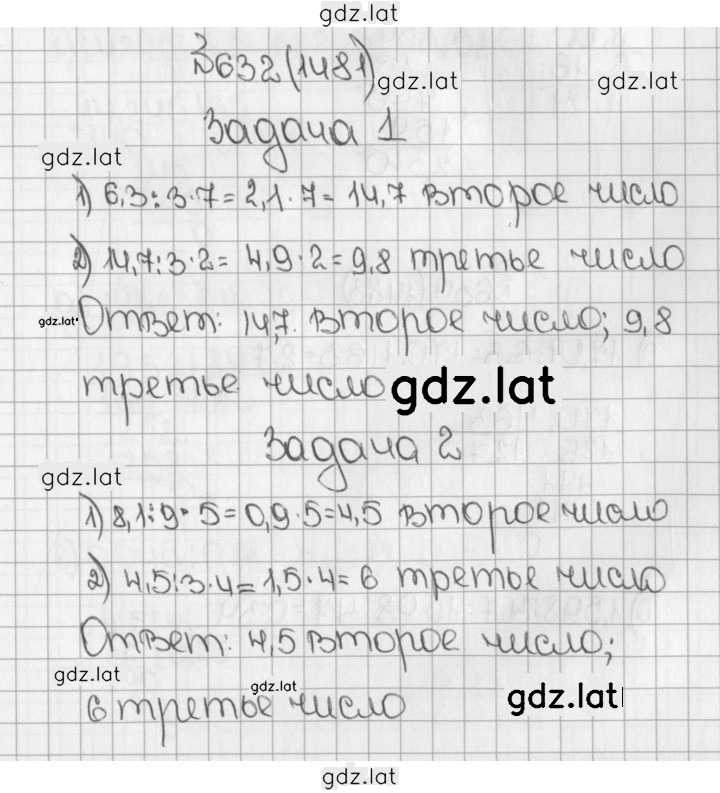 gdz.lat
№632(1481)
gdz.lat
gdz.lat
Задача 1
gdz.lat
1) 6,3:3·7=2,1·7=14,7 второе число
2) 14,7:3·2=4,9·2=9,8 третье число
gdz.lat
Ответ: 14,7. второе число; 9,8
третье число
gdz.lat
Задача 2
gdz.lat
1) 8,1:9·5=0,9·5=4,5 второе число
2) 4,5:3·4=1,5·4=6 третье число
Ответ: 4,5 второе число;
gdz.lat
gdz.lat
gdz.lat
6 третье число
gdz.lat